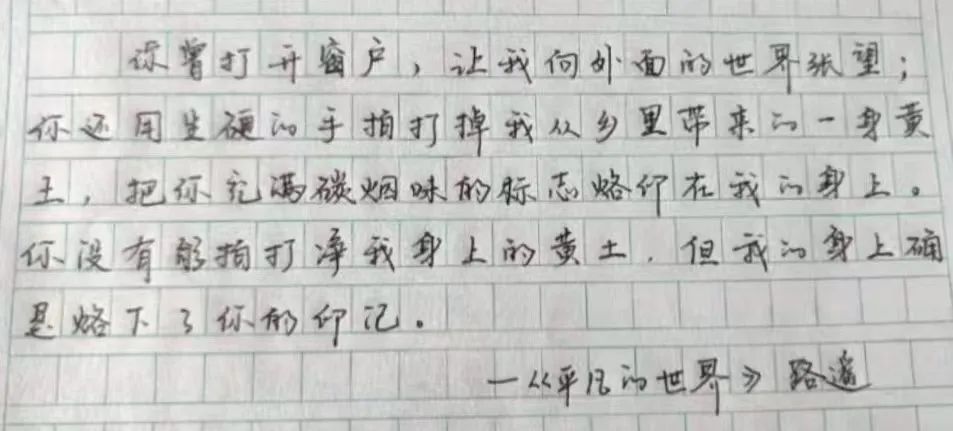 你曾打开窗户，让我向外面的世界张望；
你还用生硬的手拍打掉我从乡里带来的一身黄
土，把你充满碳烟味的标志烙印在我的身上。
你没有能拍打净我身上的黄土，但我的身上确
是烙下了你的印记。
—《平凡的世界》路遥